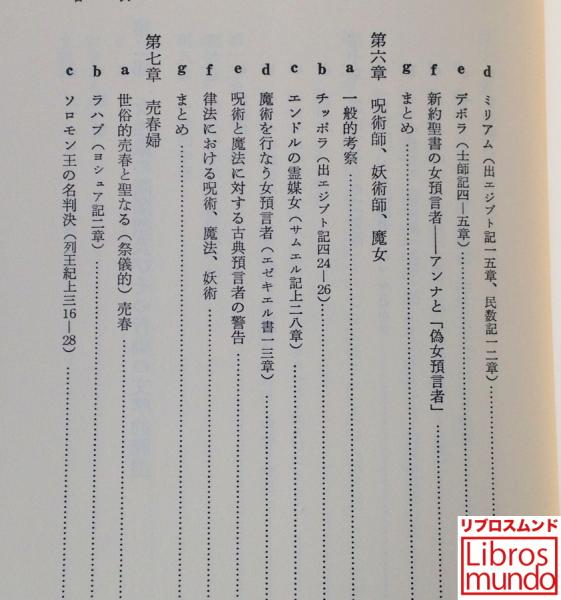 d ミリアム（出エジプト記一五章、民数記一二章）
e デボラ（士師記四—五章）
f 新約聖書の女預言者——アンナと「偽女預言者」
g まとめ
第六章 呪術師、妖術師、魔女
a 一般的考察
b チッポラ（出エジプト記四24—26）
c エンドルの霊媒女（サムエル記上二八章）
d 魔術を行なう女預言者（エゼキエル書一三章）
e 呪術と魔法に対する古典預言者の警告
f 律法における呪術、魔法、妖術
g まとめ
第七章 売春婦
a 世俗的売春と聖なる（祭儀的）売春
b ラハブ（ヨシュア記二章）
c ソロモン王の名判決（列王紀上三16—28）
リブロスムンド
Libros
mundo